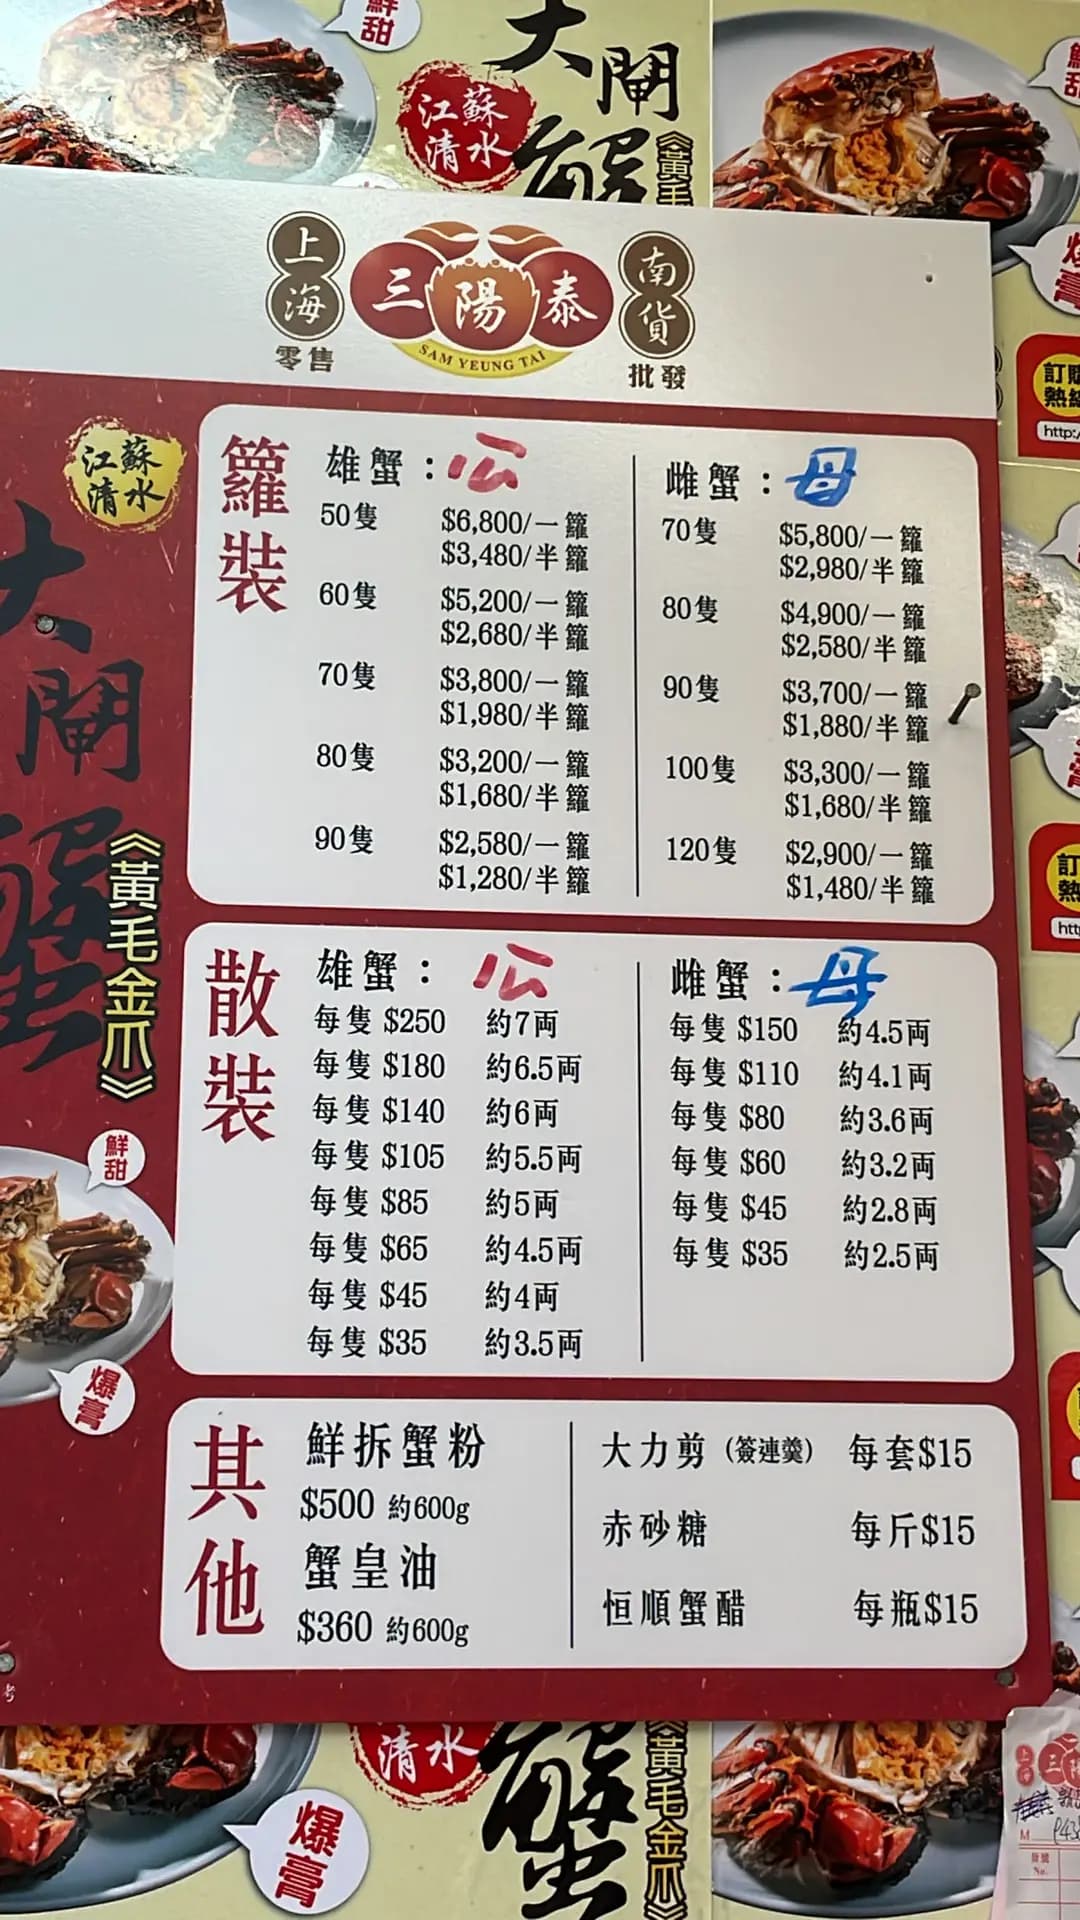 鮮甜
大閘蟹
江蘇
清水
《黃毛
鮮甜
爆膏
上海
零售
三陽泰
SAM YEUNG TAI
南貨
批發
訂購
熱線
http:/
江蘇
清水
大閘蟹
《黃毛金爪》
鮮甜
爆膏
籮裝
雄蟹：公
50隻 $6,800/一籮
$3,480/半籮
60隻 $5,200/一籮
$2,680/半籮
70隻 $3,800/一籮
$1,980/半籮
80隻 $3,200/一籮
$1,680/半籮
90隻 $2,580/一籮
$1,280/半籮
雌蟹：母
70隻 $5,800/一籮
$2,980/半籮
80隻 $4,900/一籮
$2,580/半籮
90隻 $3,700/一籮
$1,880/半籮
100隻 $3,300/一籮
$1,680/半籮
120隻 $2,900/一籮
$1,480/半籮
散裝
雄蟹：公
每隻 $250 約7両
每隻 $180 約6.5両
每隻 $140 約6両
每隻 $105 約5.5両
每隻 $85 約5両
每隻 $65 約4.5両
每隻 $45 約4両
每隻 $35 約3.5両
雌蟹：母
每隻 $150 約4.5両
每隻 $110 約4.1両
每隻 $80 約3.6両
每隻 $60 約3.2両
每隻 $45 約2.8両
每隻 $35 約2.5両
其他
鮮拆蟹粉
$500 約600g
蟹皇油
$360 約600g
大力剪（簽連羹） 每套$15
赤砂糖 每斤$15
恒順蟹醋 每瓶$15
訂
熱
htt
考
清水
蟹
《黃毛金爪》
爆膏